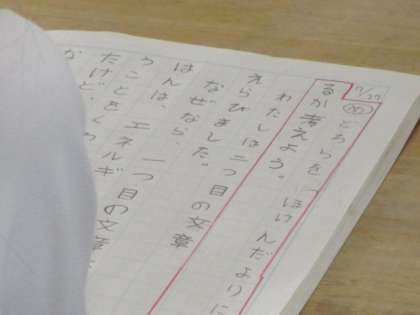 7/17
め どちらをほけんだよりに
るか考えよう。
わたしは二つ目の文章
えらびました。
なぜなら、一つ目の文章
はんは、エネルギ
うことをく
たけど、
な